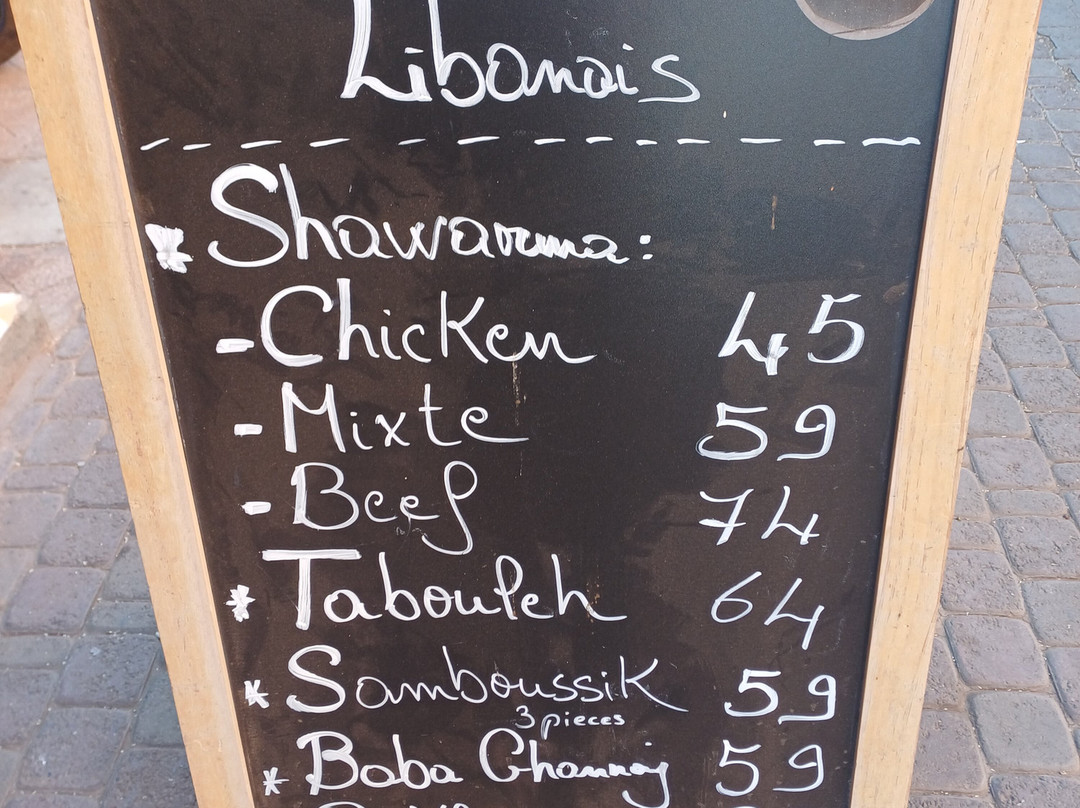 Libanais
* Shawarma:
- Chicken 45
- Mixte 59
- Beef 74
* Tabouleh 64
* Samboussik 59
3 pieces
* Baba Ghannoj 59